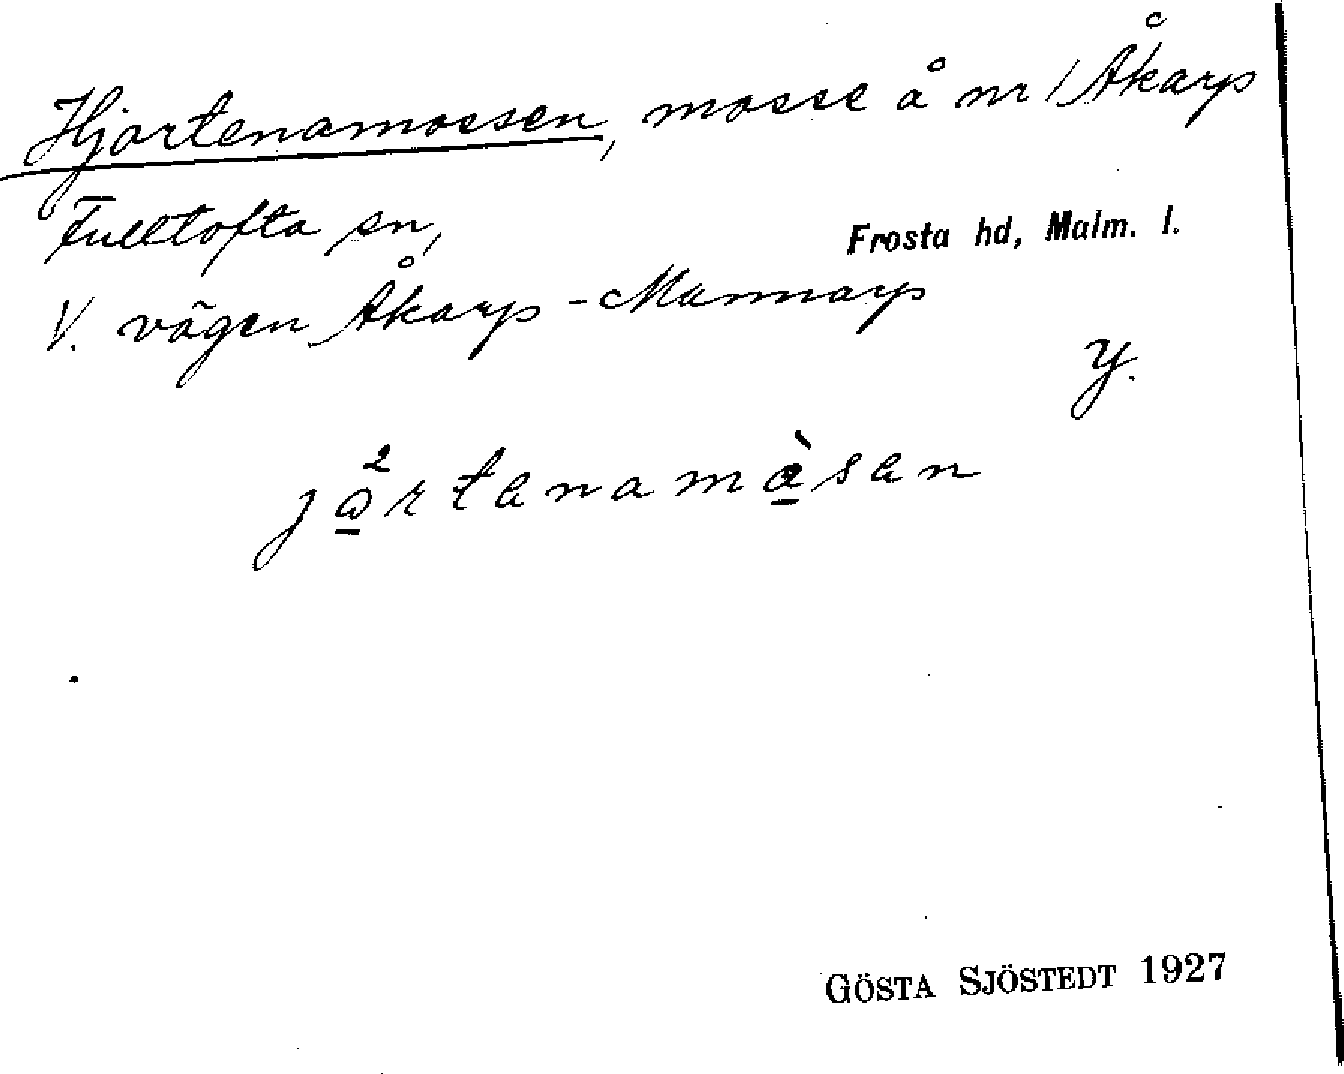 Hjortenamossen, mosse å nr 1 Åkarp
Fulltofta sn, Frosta hd, Malm. l.
V. vägen Åkarp - Mannarp
Y.
GÖSTA SJÖSTEDT 1927